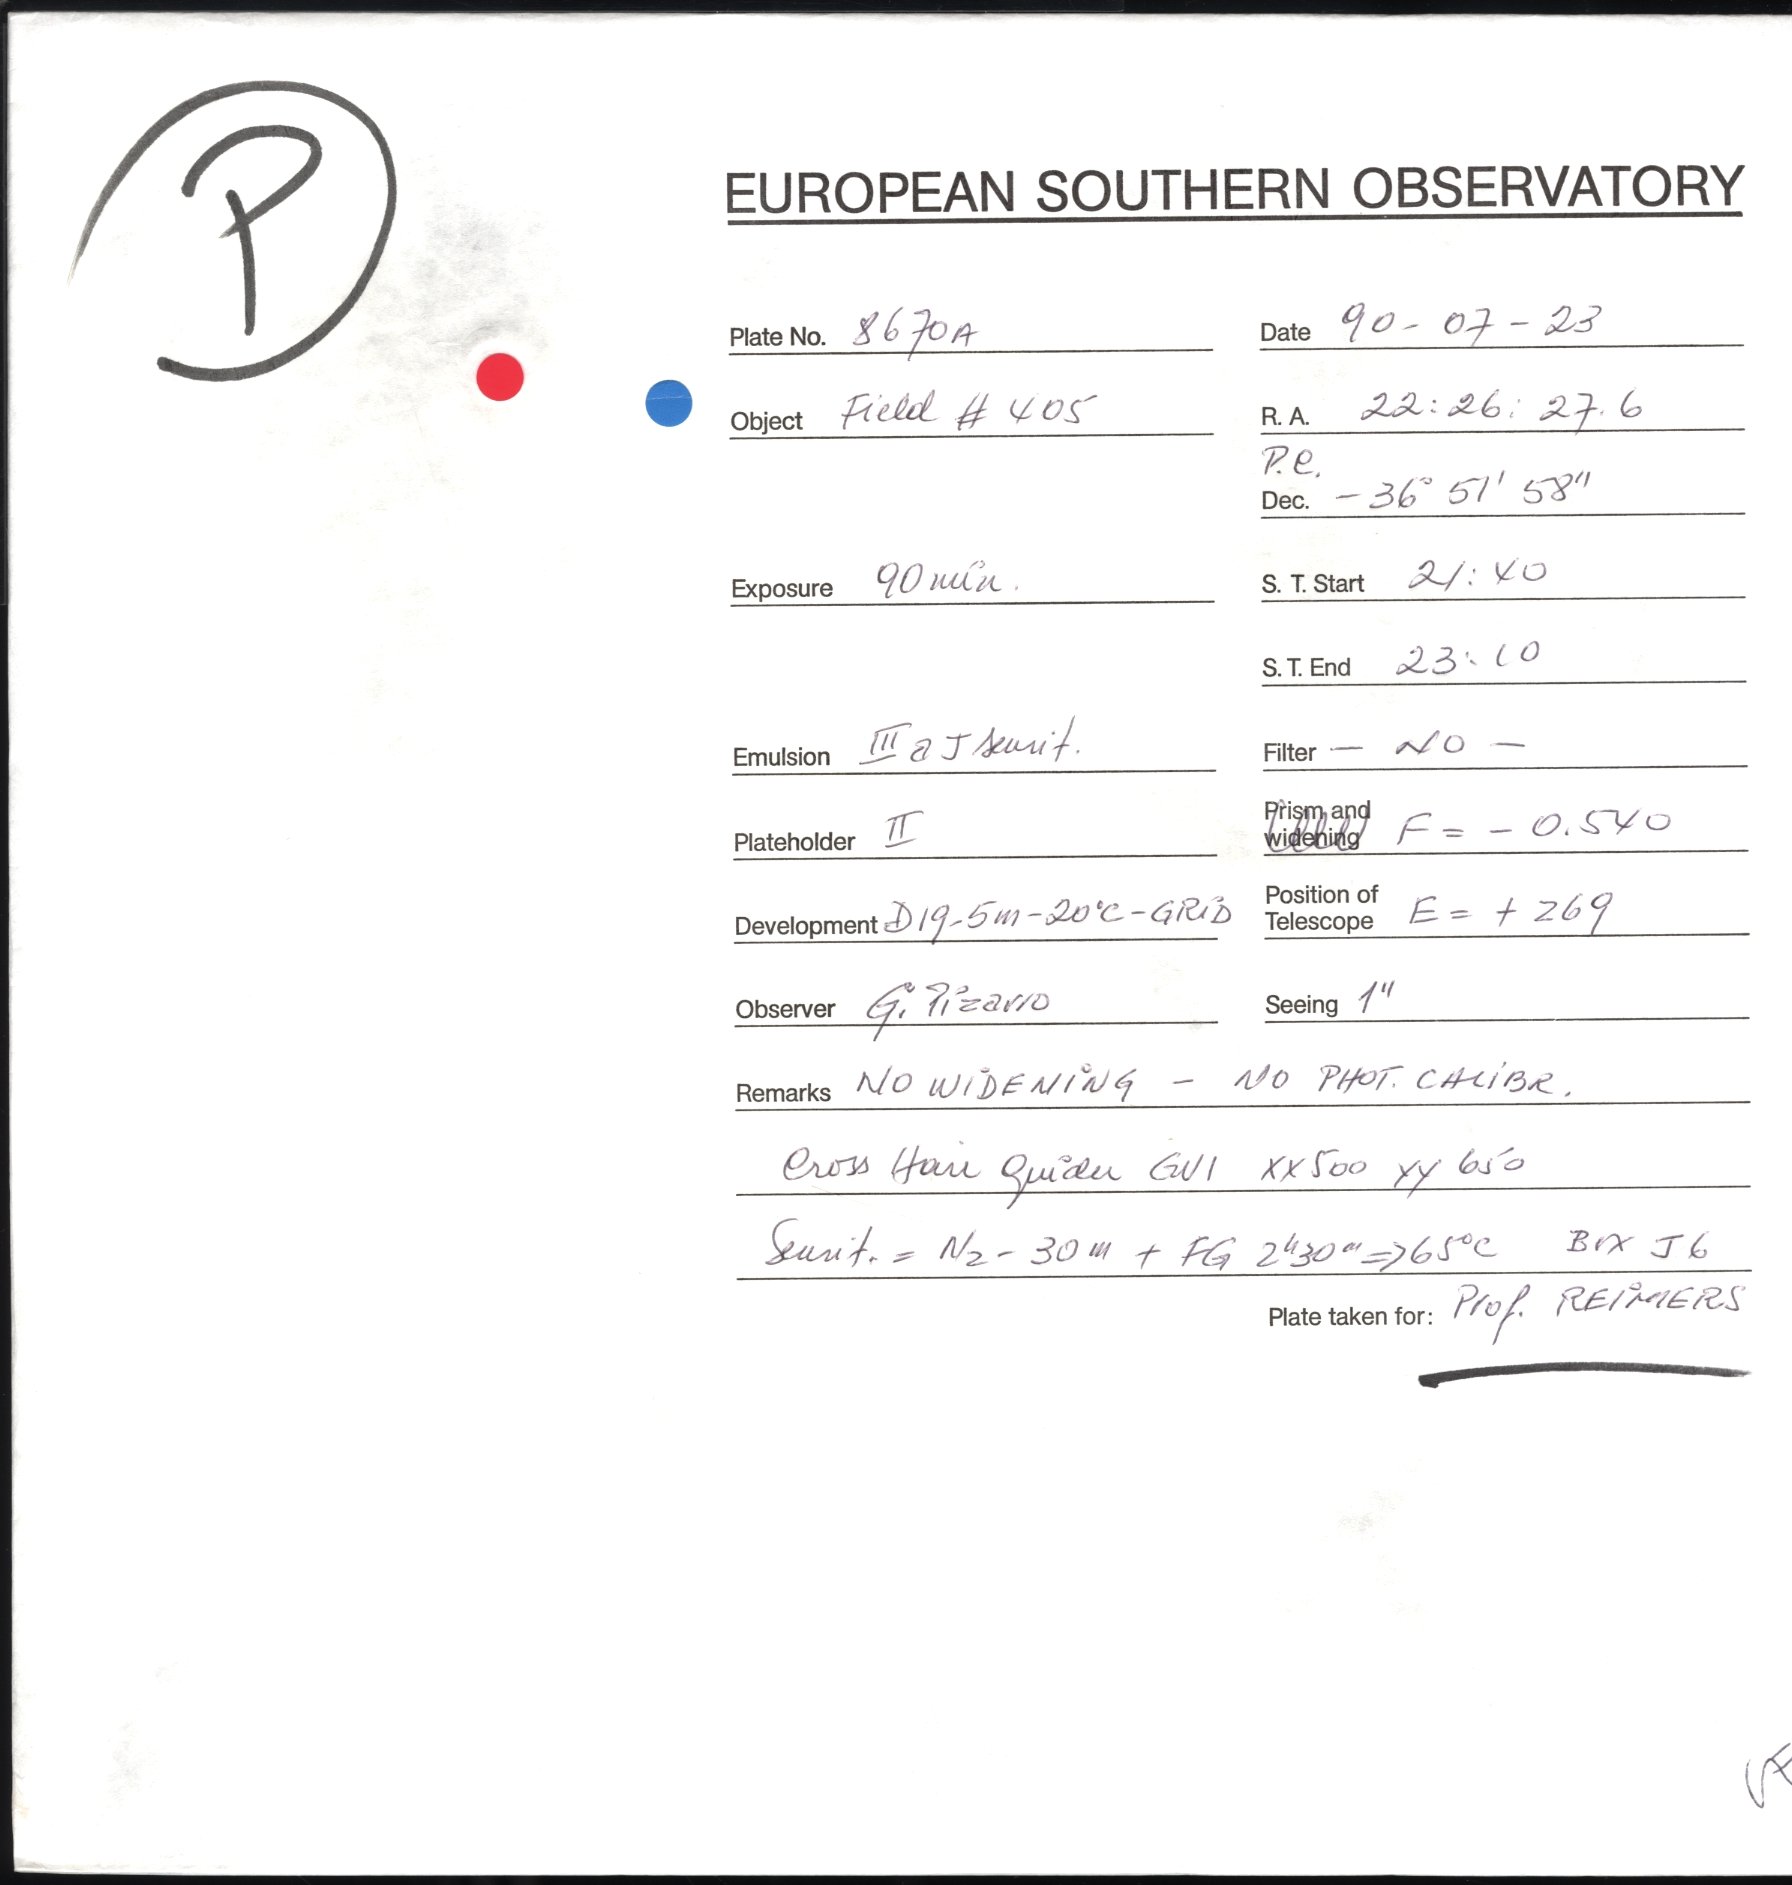 P
EUROPEAN SOUTHERN OBSERVATORY
Plate No. 8670A Date 90-07-23
Object Field # 405 R. A. 22:26:27.6
P.e.
Dec. -36° 51' 58"
Exposure 90 min. S. T. Start 21:40
S. T. End 23:10
Emulsion III a J sensit. Filter — NO —
Plateholder II Prism and widening F = - 0.540
Development D19-5m-20°C-GRID Position of Telescope E = + 269
Observer G. Pizarro Seeing 1"
Remarks NO WIDENING - NO PHOT. CALIBR.
Cross Hair Guider GW1 XX500 YY 650
Sensit. = N2 - 30m + FG 2h30m => 65°C Box J6
Plate taken for: Prof. REIMERS